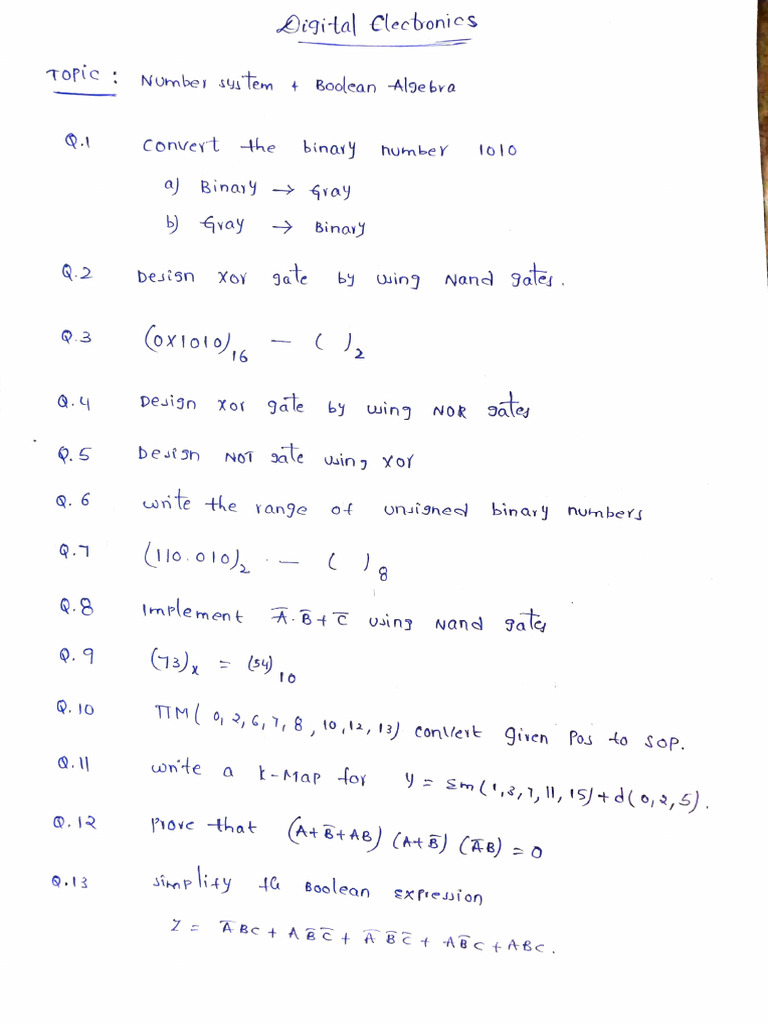 Digital Electronics
Topic : Number system + Boolean Algebra
Q.1 convert the binary number 1010
a) Binary → Gray
b) Gray → Binary
Q.2 Design XOR gate by using Nand gates.
Q.3 (0X1010)₁₆ — ( )₂
Q.4 Design XOR gate by using NOR gates
Q.5 Design NOT gate using XOR
Q.6 write the range of unsigned binary numbers
Q.7 (110.010)₂ — ( )₈
Q.8 implement A̅.B̅+C̅ using Nand gates
Q.9 (73)ₓ = (54)₁₀
Q.10 πM( 0, 2, 6, 7, 8, 10, 12, 13) convert given Pos to SOP.
Q.11 write a K-Map for Y = Σm(1,3,7,11,15)+d(0,2,5).
Q.12 Prove that (A+B̅+AB) (A+B̅) (A̅B) = 0
Q.13 simplify the Boolean expression
Z = A̅BC + AB̅C̅ + A̅B̅C̅ + AB̅C + ABC.